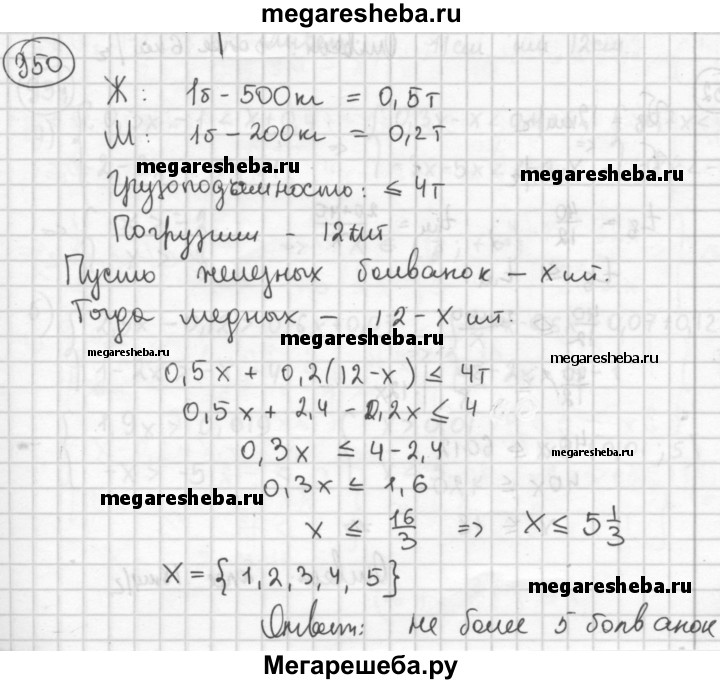 megaresheba.ru
950
Ж: 1б – 500кг = 0,5т
М: 1б – 200кг = 0,2т
megaresheba.ru
megaresheba.ru
Грузоподъмность: ≤ 4т
Погрузили – 12 шт
Пусть железных болванок – x шт.
Тогда медных – 12 - x шт.
megaresheba.ru
megaresheba.ru
megaresheba.ru
0,5x + 0,2(12-x) ≤ 4т
0,5x + 2,4 - 0,2x ≤ 4
0,3x ≤ 4 - 2,4
megaresheba.ru
megaresheba.ru
0,3x ≤ 1,6
x ≤ 16/3 => x ≤ 5 1/3
x = {1, 2, 3, 4, 5}
megaresheba.ru
Ответ: не более 5 болванок
Мегарешеба.ру